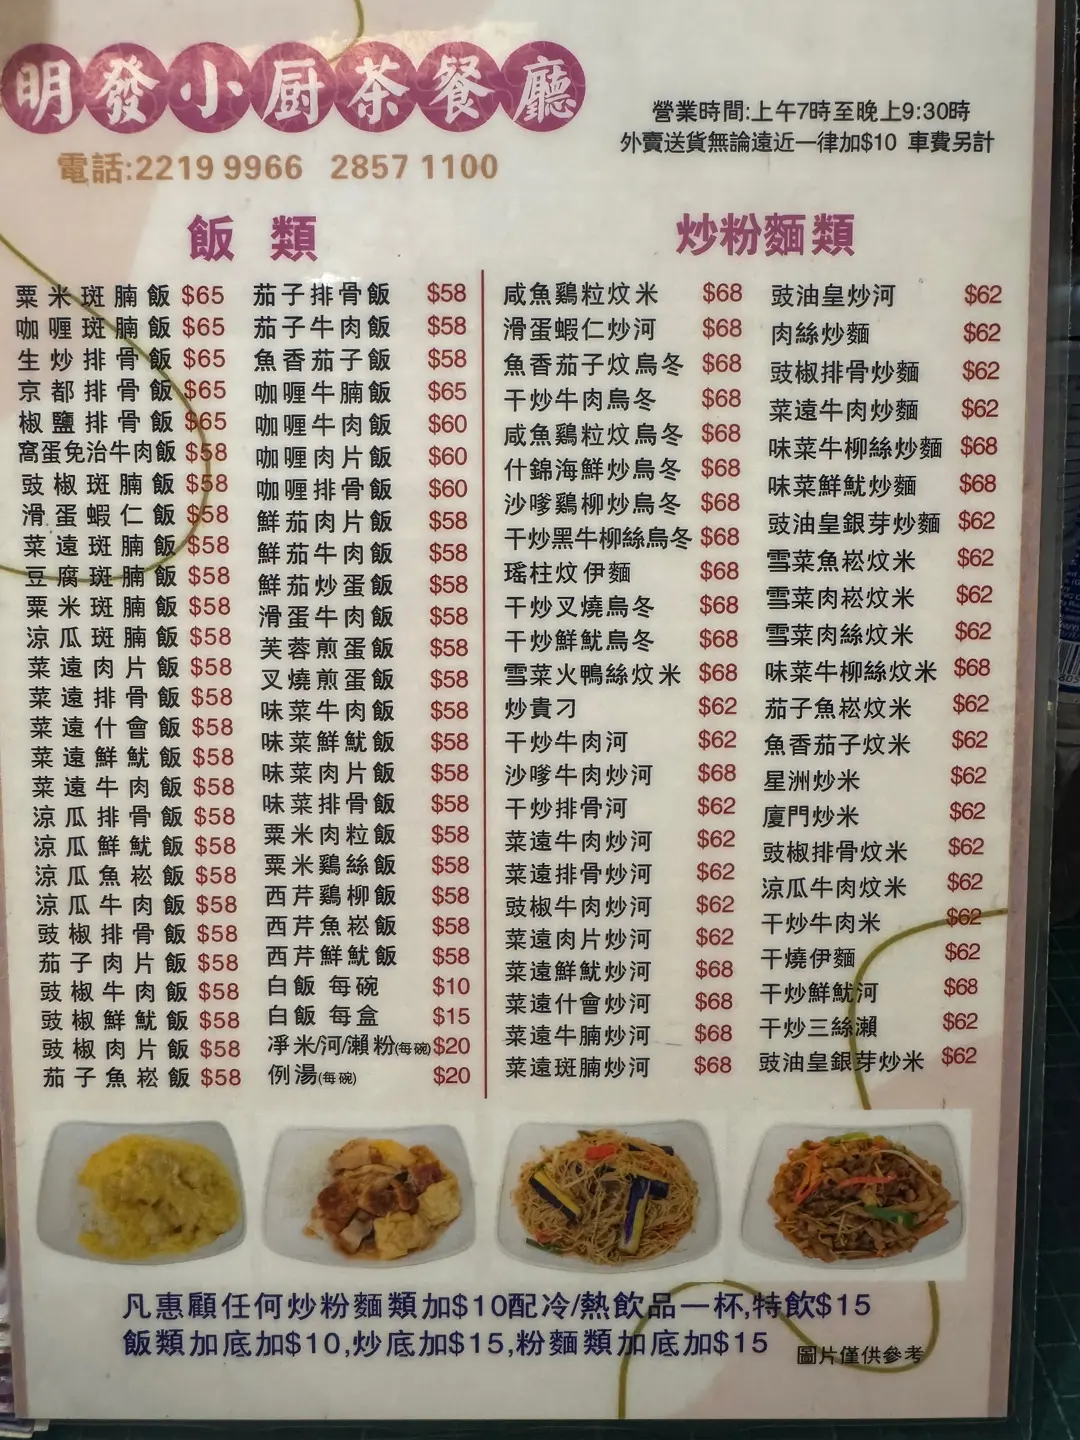 明發小厨茶餐廳
營業時間:上午7時至晚上9:30時
外賣送貨無論遠近一律加$10 車費另計
電話:2219 9966 2857 1100
飯類
粟米斑腩飯 $65
咖喱斑腩飯 $65
生炒排骨飯 $65
京都排骨飯 $65
椒鹽排骨飯 $65
窩蛋免治牛肉飯 $58
豉椒斑腩飯 $58
滑蛋蝦仁飯 $58
菜遠斑腩飯 $58
豆腐斑腩飯 $58
粟米斑腩飯 $58
涼瓜斑腩飯 $58
菜遠肉片飯 $58
菜遠排骨飯 $58
菜遠什會飯 $58
菜遠鮮魷飯 $58
菜遠牛肉飯 $58
涼瓜排骨飯 $58
涼瓜鮮魷飯 $58
涼瓜魚崧飯 $58
涼瓜牛肉飯 $58
豉椒排骨飯 $58
茄子肉片飯 $58
豉椒牛肉飯 $58
豉椒鮮魷飯 $58
豉椒肉片飯 $58
茄子魚崧飯 $58
茄子排骨飯 $58
茄子牛肉飯 $58
魚香茄子飯 $58
咖喱牛腩飯 $65
咖喱牛肉飯 $60
咖喱肉片飯 $60
咖喱排骨飯 $60
鮮茄肉片飯 $58
鮮茄牛肉飯 $58
鮮茄炒蛋飯 $58
滑蛋牛肉飯 $58
芙蓉煎蛋飯 $58
叉燒煎蛋飯 $58
味菜牛肉飯 $58
味菜鮮魷飯 $58
味菜肉片飯 $58
味菜排骨飯 $58
粟米肉粒飯 $58
粟米鷄絲飯 $58
西芹鷄柳飯 $58
西芹魚崧飯 $58
西芹鮮魷飯 $58
白飯 每碗 $10
白飯 每盒 $15
淨米/河/瀨粉(每碗) $20
例湯(每碗) $20
炒粉麵類
咸魚鷄粒炆米 $68
滑蛋蝦仁炒河 $68
魚香茄子炆烏冬 $68
干炒牛肉烏冬 $68
咸魚鷄粒炆烏冬 $68
什錦海鮮炒烏冬 $68
沙嗲鷄柳炒烏冬 $68
干炒黑牛柳絲烏冬 $68
瑤柱炆伊麵 $68
干炒叉燒烏冬 $68
干炒鮮魷烏冬 $68
雪菜火鴨絲炆米 $68
炒貴刁 $62
干炒牛肉河 $62
沙嗲牛肉炒河 $68
干炒排骨河 $62
菜遠牛肉炒河 $62
菜遠排骨炒河 $62
豉椒牛肉炒河 $62
菜遠肉片炒河 $62
菜遠鮮魷炒河 $68
菜遠什會炒河 $68
菜遠牛腩炒河 $68
菜遠斑腩炒河 $68
豉油皇炒河 $62
肉絲炒麵 $62
豉椒排骨炒麵 $62
菜遠牛肉炒麵 $62
味菜牛柳絲炒麵 $68
味菜鮮魷炒麵 $68
豉油皇銀芽炒麵 $62
雪菜魚崧炆米 $62
雪菜肉崧炆米 $62
雪菜肉絲炆米 $62
味菜牛柳絲炆米 $68
茄子魚崧炆米 $62
魚香茄子炆米 $62
星洲炒米 $62
廈門炒米 $62
豉椒排骨炆米 $62
涼瓜牛肉炆米 $62
干炒牛肉米 $62
干燒伊麵 $62
干炒鮮魷河 $68
干炒三絲瀨 $62
豉油皇銀芽炒米 $62
凡惠顧任何炒粉麵類加$10配冷/熱飲品一杯,特飲$15
飯類加底加$10,炒底加$15,粉麵類加底加$15
圖片僅供參考